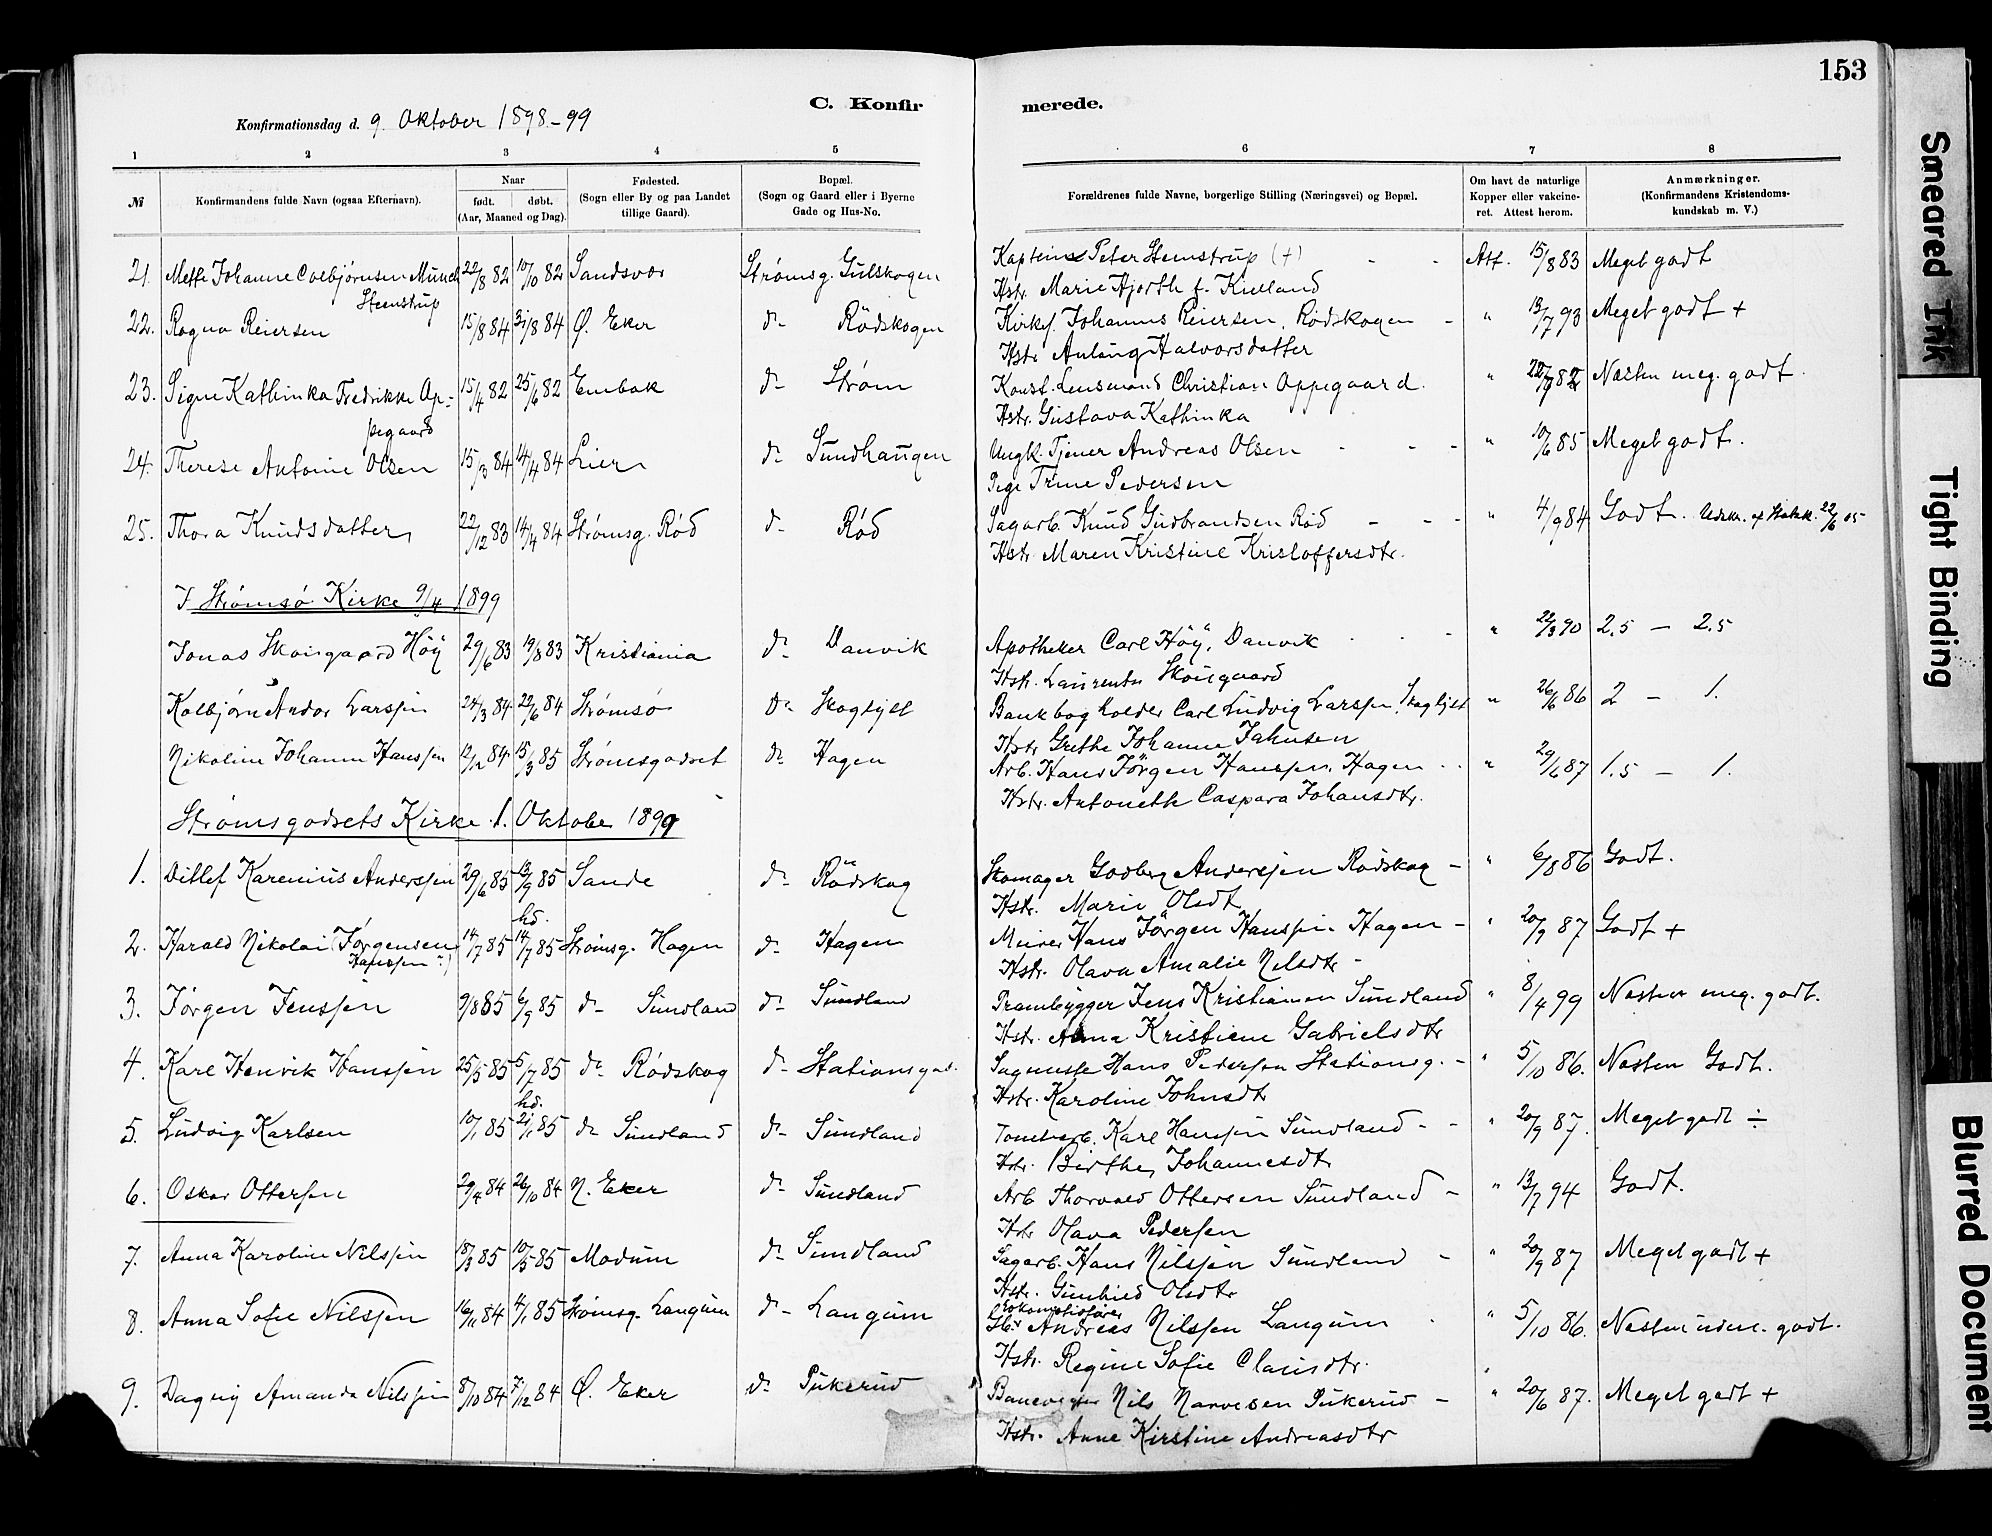 153
C. Konfirmerede.
Konfirmationsdag d. 9. Oktober 1898-99
1 2 3 4 5 6 7 8
№ Konfirmandens fulde Navn (ogsaa Efternavn). Naar født. døbt. (Aar, Maaned og Dag). Fødested. (Sogn eller By og paa Landet tillige Gaard). Bopæl. (Sogn og Gaard eller i Byerne Gade og Hus-No. Forældrenes fulde Navne, borgerlige Stilling (Næringsvei) og Bopæl. Om havt de naturlige Kopper eller vakcineret. Attest herom. Anmærkninger. (Konfirmandens Kristendomskundskab m. V.)
21. Mette Johanne Colbjørnsen Munch 22/8 82 10/10 82 Sandsvær Strømsg. Gulskogen Kaptein Peter Steenstrup (+) - - Att. 15/8 83 Meget godt
Steenstrup Hstr. Marie Hjorth f. Kielland
22. Ragna Reiersen 15/8 84 31/8 84 Ø. Eker do Rödskogen Kirkes. Johannes Reiersen, Rödskogen - " 13/7 93 Meget godt +
Hstr. Anlaug Halvorsdatter
23. Signe Kathinka Fredrikke Ap- 15/4 82 25/6 82 Embak do Strøm Konst. Lensmand Christian Oppegaard. " 22/7 82 Næsten meg. godt.
pegaard Hstr. Gustava Kathinka
24. Therese Antonie Olsen 15/3 84 14/4 84 Lier do Sundhaugen Ungk. Tjener Andreas Olsen - - - " 10/6 85 Meget godt.
Pige Trine Pedersen
25. Thora Knudsdatter 22/12 83 14/4 84 Strømsg. Rød do Rød Sagarb. Knud Gudbrandsen Rød - - - " 4/9 84 Godt. Udskr. af Statsk. 22/6 05
Hstr. Maren Kristine Kristoffersdtr.
I Strømsø Kirke 9/4 1899
Jonas Skougaard Höÿ 29/6 83 19/8 83 Kristiania do Danvik Apotheker Carl Höÿ, Danvik - - - " 22/3 90 2.5 - 2.5
Hstr. Laurentse Skougaard
Kolbjørn Andor Larssen 24/3 84 22/6 84 Strømsø do Skoglyst Bankbogholder Carl Ludvig Larssen, Skoglyst " 26/6 86 2 - 1.
Hstr. Grethe Johanne Jahnsen
Nikoline Johanne Hanssen 12/12 84 15/3 85 Strømsgodset do Hagen Arb. Hans Jörgen Hanssen, Hagen - - " 29/6 87 1.5 - 1.
Hstr. Antonette Caspara Johansdtr.
Strømsgodsets Kirke 1. Oktober 1899
1. Ditlef Karenius Anderssen 29/6 85 13/9 85 Sande do Rödskog Skomager Godberg Anderssen Rödskog - " 6/8 86 Godt.
hd. Hstr. Marie Olsdt
2. Harald Nikolai (Jørgensen 14/7 85 14/7 85 Strømsg. Hagen do Hagen Meier Hans Jörgen Hanssen Hagen - " 20/9 87 Godt +
Hanssen?) Hstr. Olava Amalie Nilsdtr -
3. Jørgen Jenssen 9/8 85 6/9 85 do Sundland do Sundland Prambygger Jens Kristiansen Sundland " 8/4 99 Næsten meg. godt.
Hstr. Anna Kristiene Gabrielsdtr
4. Karl Henrik Hanssen 25/5 85 5/7 85 do Rödskog do Stationsgad. Sagmester Hans Pederssen Stationsg. - " 5/10 86. Næsten Godt.
hd. Hstr. Karoline Johnsdt
5. Ludvig Karlsen 10/1 85 21/1 85 do Sundland do Sundland Tomtearb. Karl Hanssen Sundland - - " 20/9 87. Meget godt ÷
Hstr. Birthe Johannesdt
6. Oskar Otterssen 29/4 84 26/10 84 N. Eker do Sundland Arb Thorvald Ottersen Sundland - " 13/7 94 Godt.
Hstr Olava Pederssen
7. Anna Karoline Nilssen 18/3 85 10/5 85 Modum do Sundland Sagarb. Hans Nilssen Sundland - " 20/9 87 Meget godt +
Hstr. Gunhild Olsdtr
8. Anna Sofie Nilssen 16/11 84 4/1 85 Strømsg. Langum do Langum Andreas Nilssen Langum " 5/10 86. Næsten udm. godt.
Hstr. Regine Sofie Clausdtr.
9. Dagny Amanda Nilssen 8/10 84 7/12 84 Ø. Eker do Pukerud Banevogter Nils Narvesen Pukerud - " 20/6 87. Meget godt +
Hstr. Anne Kirstine Andreasdtr
Smeared Ink
Tight Binding
Blurred Document